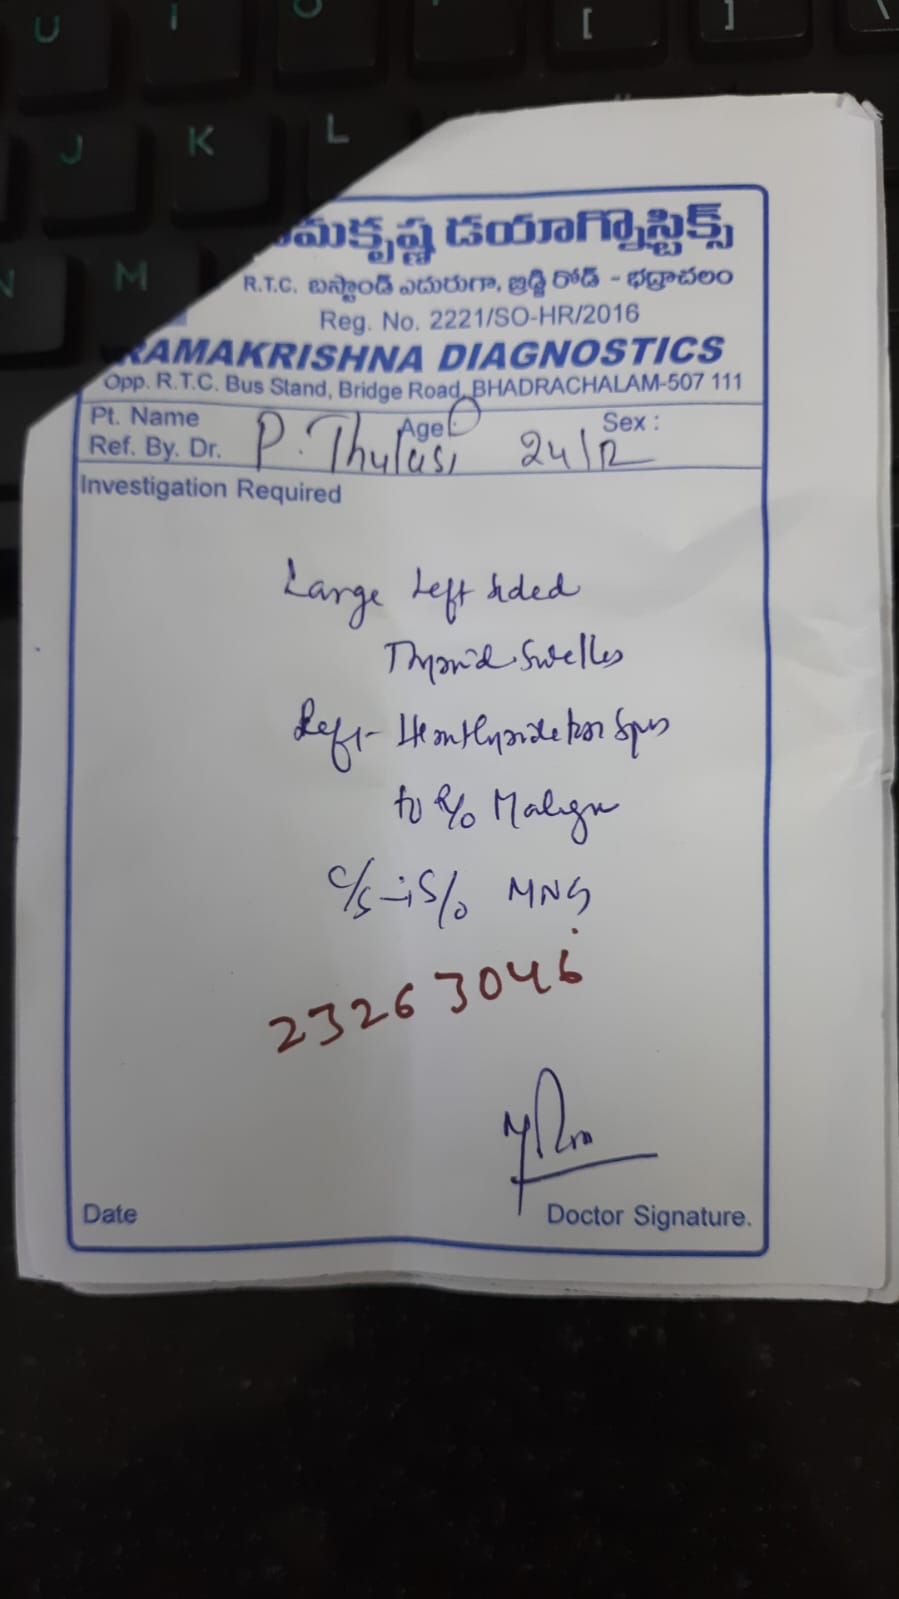 U I O [ ] \
J K L
N M
రామకృష్ణ డయాగ్నొస్టిక్స్
R.T.C. బస్టాండ్ ఎదురుగా, బ్రిడ్జి రోడ్ - భద్రాచలం
Reg. No. 2221/SO-HR/2016
RAMAKRISHNA DIAGNOSTICS
Opp. R.T.C. Bus Stand, Bridge Road, BHADRACHALAM-507 111
Pt. Name Age : Sex :
Ref. By. Dr. P. Thulasi 24/
Investigation Required
Large Left sided
Thyroid
Left-
to R/o Malign
C/s - S/o MNG
23263046
Date Doctor Signature.